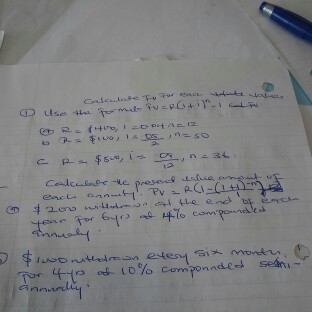 Calculate FV For each
① Use the formula FV = R(1+i)ⁿ-1
ⓐ R = $1400, i = 0.04 n = 12
b R = $100, i = 05/2, n = 50
c R = $500, i = 09/12, n = 36.
Calculate the present value amount of
each annuity. PV = R(1-(1+i)⁻ⁿ)
$2000 withdrawn at the end of each
year for 6yrs at 4% compounded
annualy
$1000 withdrawn every six months
for 4yrs at 10% compounded semi-
annually.